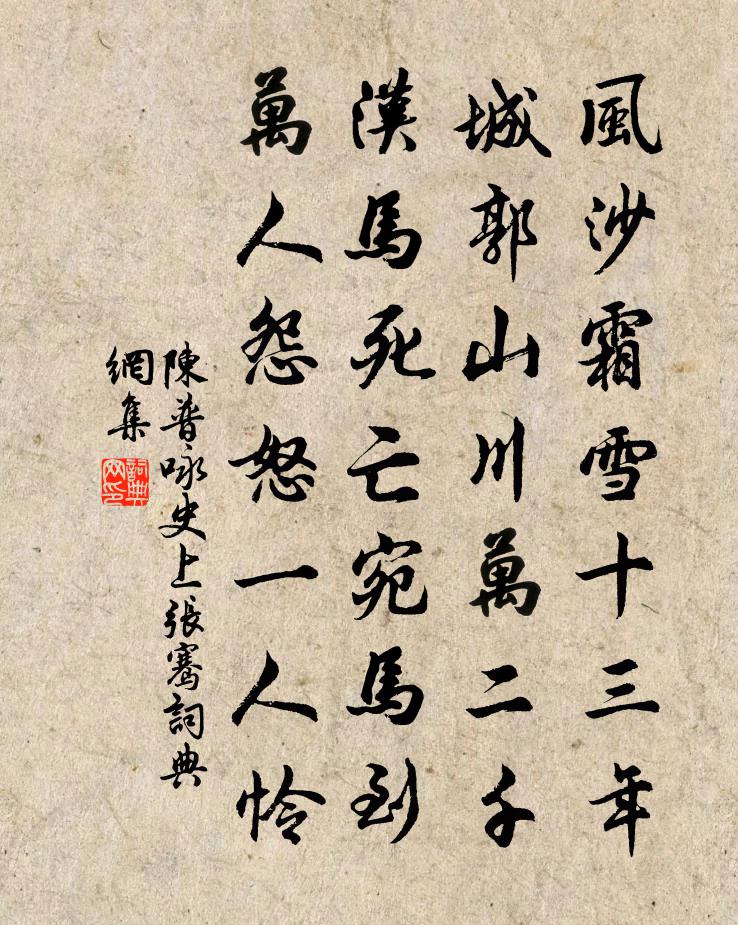 風沙霜雪十三年
城郭山川萬二千
漢馬死亡宛馬到
萬人怨怒一人怜
陳普咏史上張騫詞典
網集
詞典
网印